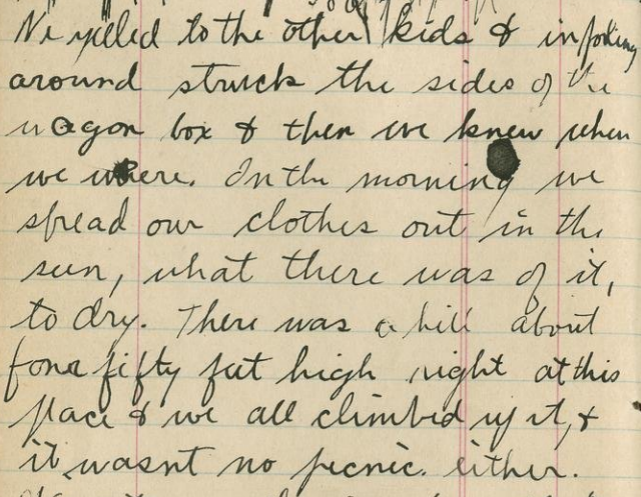 We yelled to the other kids & in poking
around struck the sides of the
wagon box & then we knew when
we where. In the morning we
spread our clothes out in the
sun, what there was of it,
to dry. There was a hill about
four fifty feet high right at this
place & we all climbed up it, &
it wasnt no picnic either.